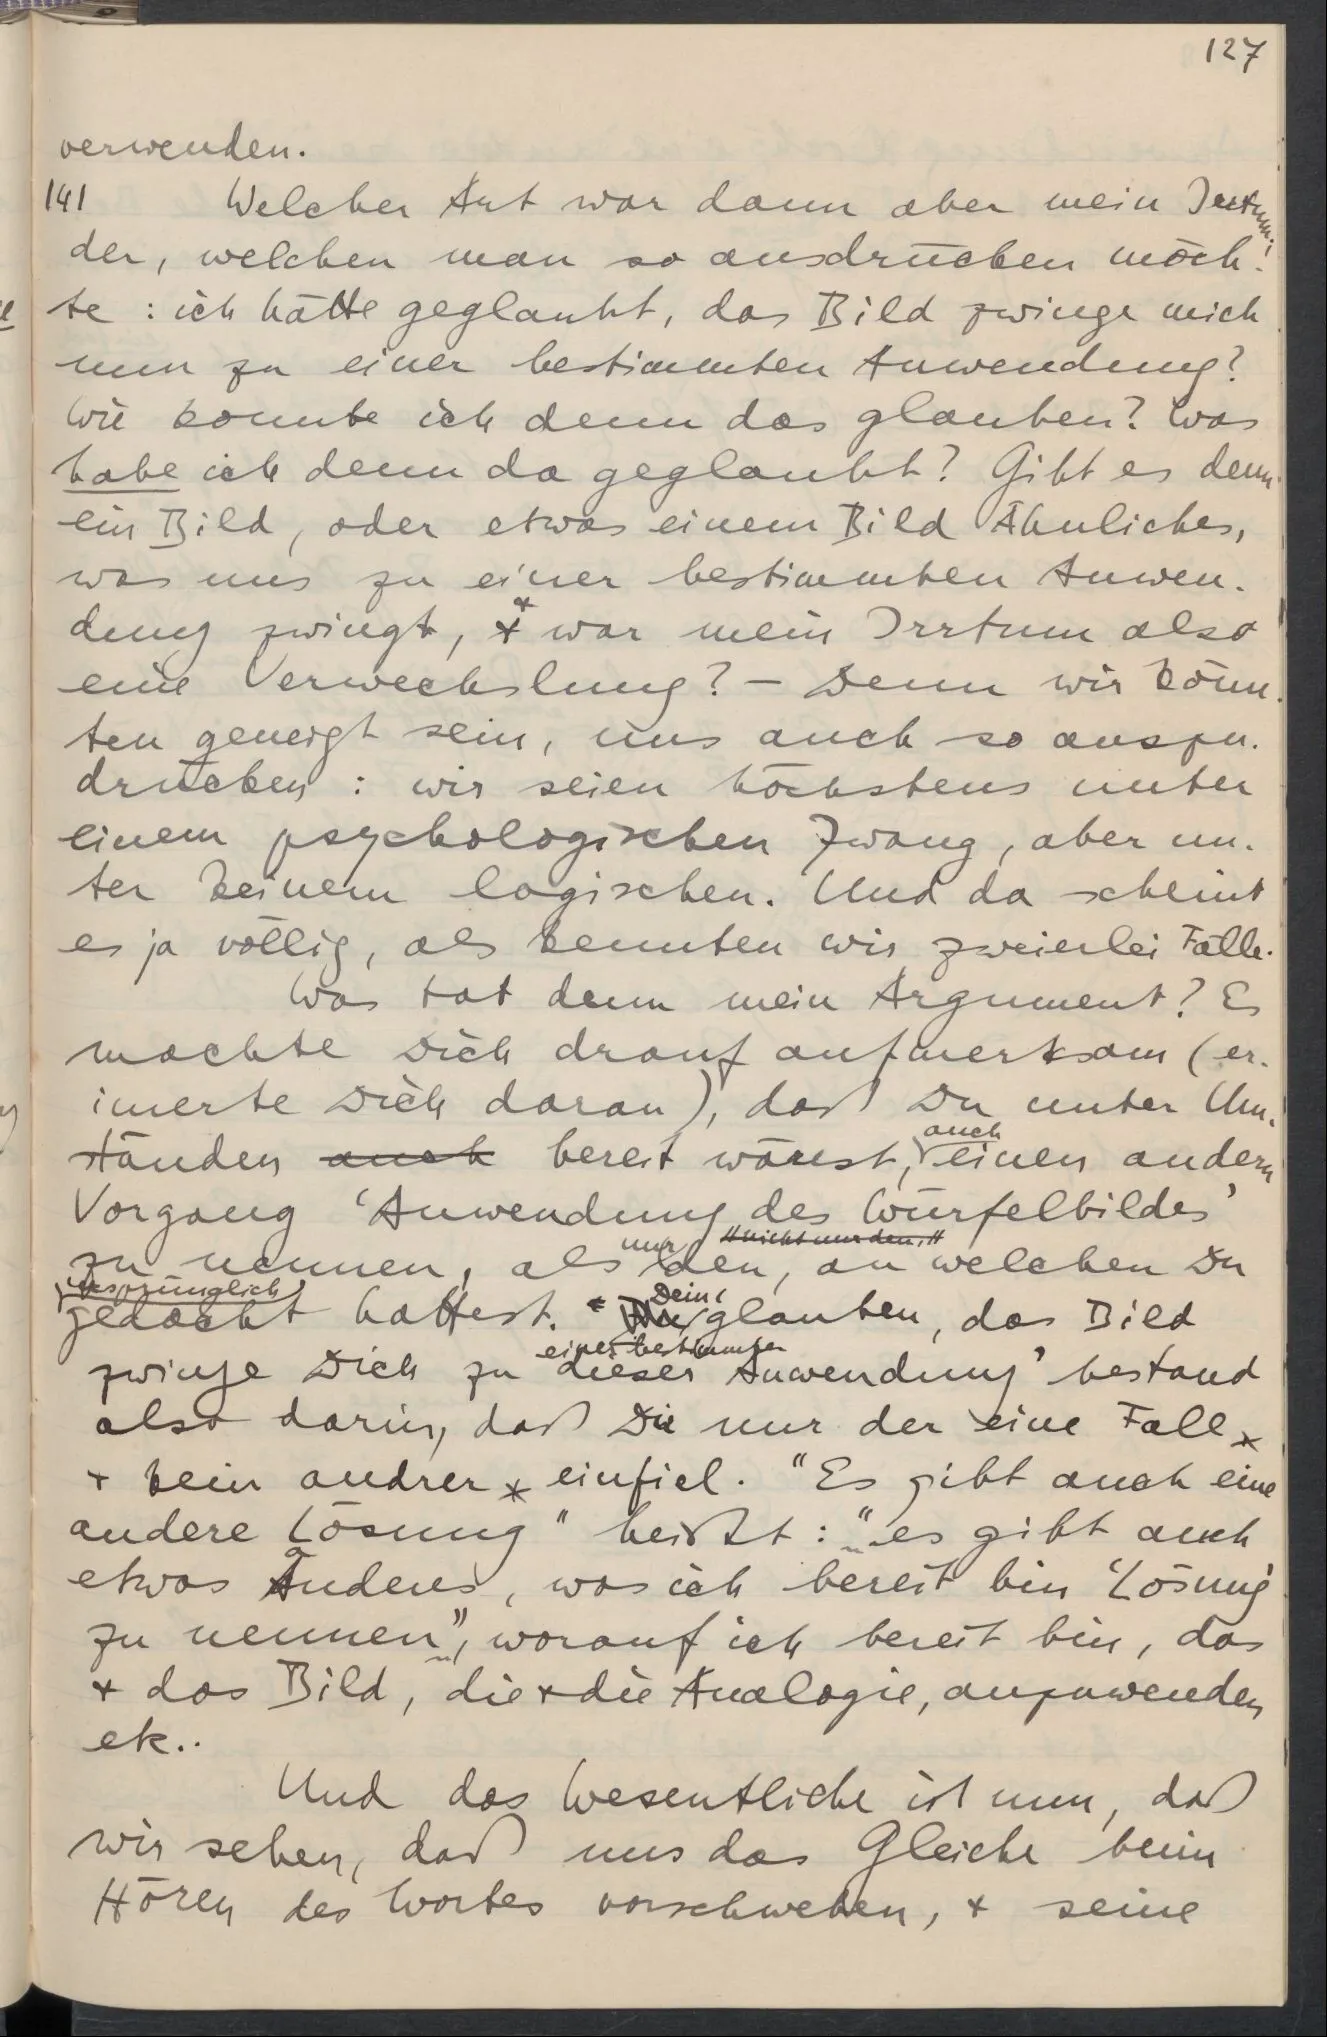 127
verwenden.
141 Welcher Art war dann aber mein Irrtum;
der, welchen man so ausdrücken möch-
te: ich hätte geglaubt, das Bild zwinge mich
nun zu einer bestimmten Anwendung?
Wie konnte ich denn das glauben? Was
habe ich denn da geglaubt? Gibt es denn
ein Bild, oder etwas einem Bild Ähnliches,
was uns zu einer bestimmten Anwen-
dung zwingt, + war mein Irrtum also
eine Verwechslung? – Denn wir könn-
ten geneigt sein, uns auch so auszu-
drücken: wir seien höchstens unter
einem psychologischen Zwang, aber un-
ter keinem logischen. Und da scheint
es ja völlig, als kennten wir zweierlei Fälle.
Was tat denn mein Argument? Es
machte Dich drauf aufmerksam (er-
innerte Dich daran), daß Du unter Um-
ständen auch bereit wärest, auch einen andern
Vorgang ‘Anwendung des Würfelbildes’
zu nennen, als nur den, "nicht nur den," an welchen Du
ursprünglich
gedacht hattest. Dein ‘glauben, das Bild
zwinge Dich zu dieser einer bestimmten Anwendung’ bestand
also darin, daß Dir nur der eine Fall
+ kein andrer einfiel. "Es gibt auch eine
andere Lösung" heißt: "es gibt auch
etwas Anderes, was ich bereit bin ‘Lösung’
zu nennen", worauf ich bereit bin, das
+ das Bild, die + die Analogie, anzuwenden
etc..
Und das Wesentliche ist nun, daß
wir sehen, daß uns das Gleiche beim
Hören des Wortes vorschweben, + seine